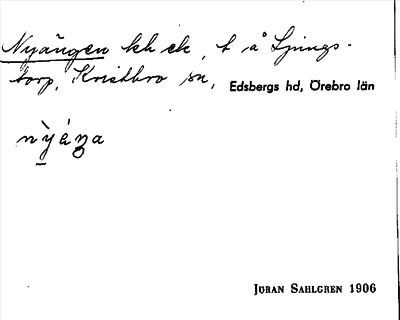 Nyängen lh ek, t å Ljungs-
torp, Knistbro sn, Edsbergs hd, Örebro län
JÖRAN SAHLGREN 1906